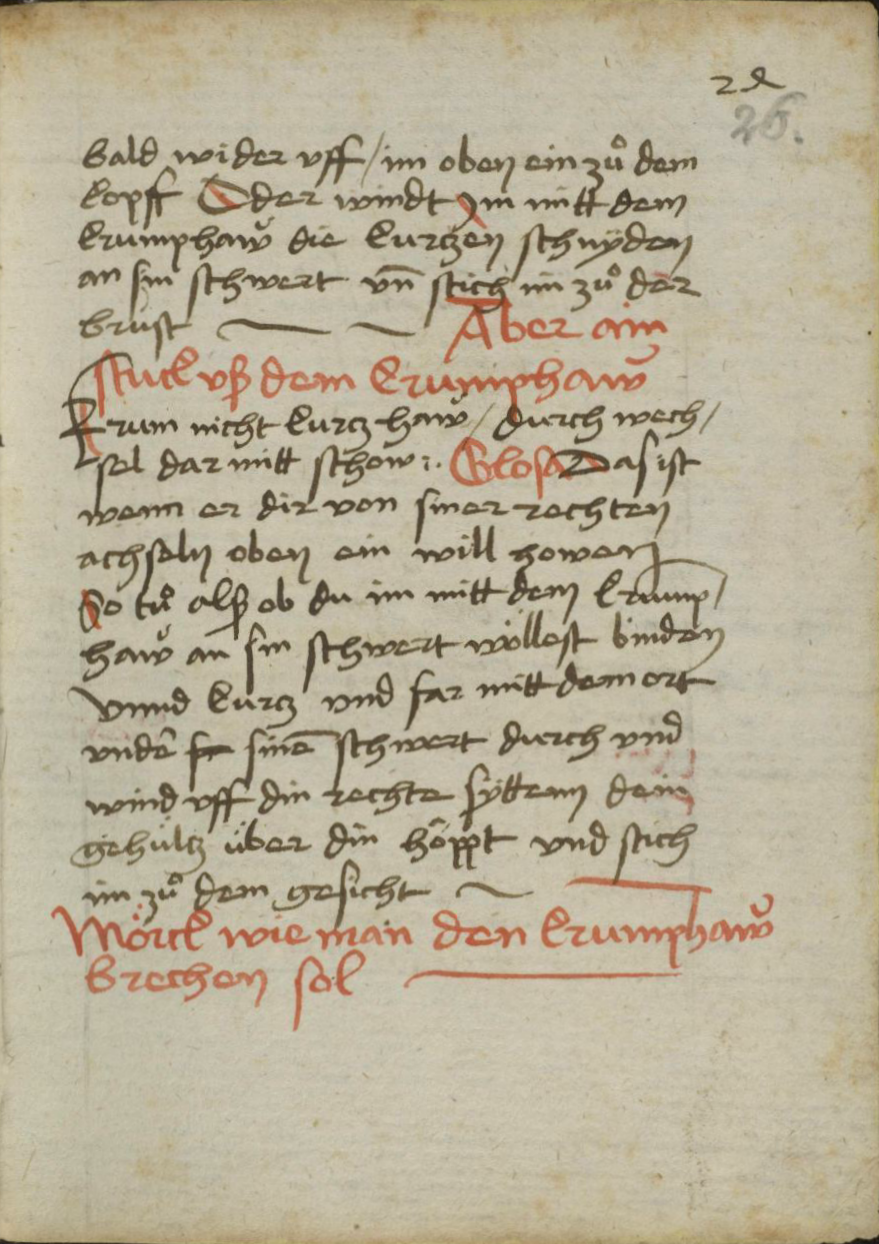 26.
bald wider vff / im oben ein zuͦ dem
kopff Oder windt Im mitt dem
krumphaw̆ die kurtzen schnyͤden
an sin schwert vn̄ stich im zuͦ der
brust Aber ain
stuck vß dem krumphaw̆
Krum nicht kurtz haw̆ / durch wech /
sel dar mitt schow :. Glosa Das ist
wenn er dir von siner rechten
achseln oben ein will howen
So tuͦ alß ob du im mitt dem krump /
haw̆ an sin schwert wöllest binden
vnnd kurtz vnd far mitt dem ort
vnde͂ sine͂ schwert durch vnd
wind vff din rechte sÿttenn dein
gehültz über din höppt vnd stich
im zuͦ dem gesicht
Mörck wie man den krumphaw̆
brechen sol